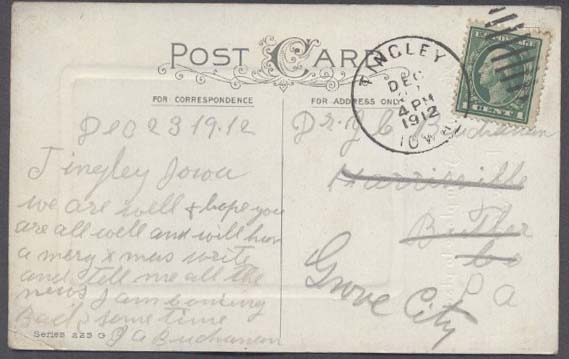 POST CARD
FOR CORRESPONDENCE
FOR ADDRESS ONLY
TINGLEY
DEC
4 PM
1912
IOWA
1 CENT 1
Dec 23 1912
Tingley Iowa
we are well & hope you
are all well and will have
a mery xmas write
and tell me all the
news I am coming
Back some time
J A Buchanan
Series 225 G
Dr. J C Buchanan
Harrisville
Butler
Co
Pa
Grove City